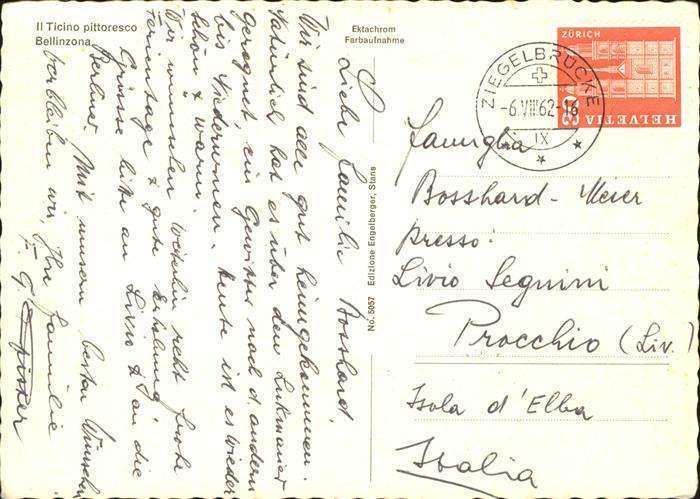 Il Ticino pittoresco
Bellinzona
Ektachrom
Farbaufnahme
Liebe Familie Bosshard,
Wir sind alle gut heimgekommen.
Natürlich hat es über den Lukmanier
geregnet ein Gewitter nach d. andern
bis Niederurnen. Heute ist es wieder
schön & warm.
Wir wünschen weiterhin recht frohe
Ferientage & gute Erholung!
Grüsse bitte an Livio & an die
Berliner. Mit unsern besten Wünschen
verbleiben wir, Ihre Familie
F. G. Pfister
No. 5057 Edizione Engelberger, Stans
ZÜRICH
HELVETIA
ZIEGELBRÜCKE
-6.VIII.62-16
IX
Famiglia
Bosshard-Meier
presso:
Livio Segnini
Procchio (Liv.)
Isola d'Elba
Italia